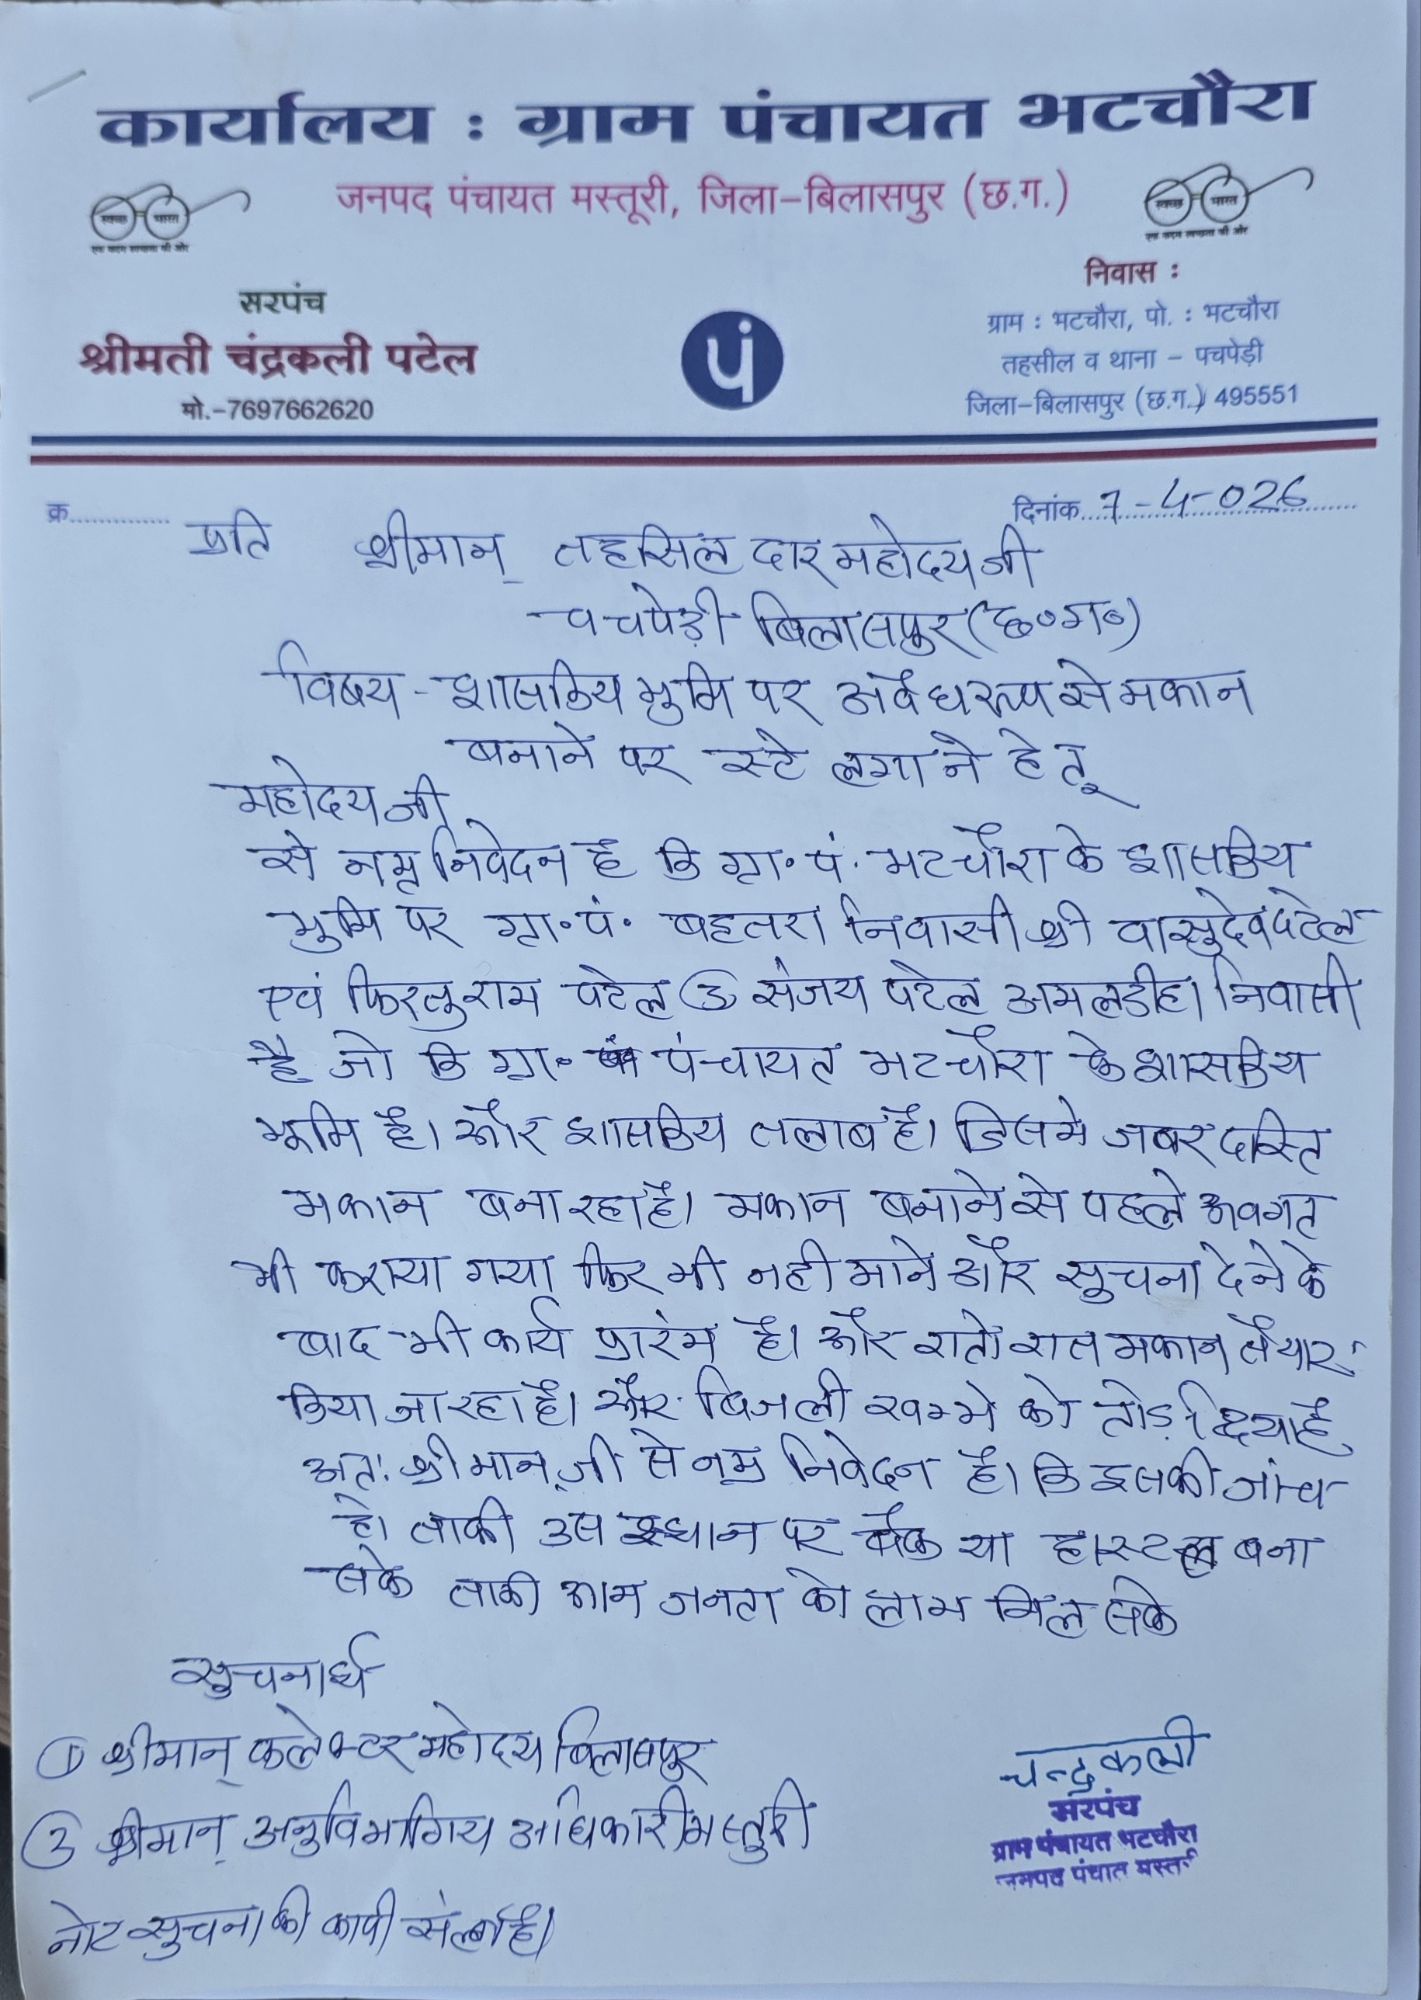 कार्यालय : ग्राम पंचायत भटचौरा
जनपद पंचायत मस्तूरी, जिला-बिलासपुर (छ.ग.)
स्वच्छ भारत
एक कदम स्वच्छता की ओर
स्वच्छ भारत
एक कदम स्वच्छता की ओर
सरपंच
श्रीमती चंद्रकली पटेल
मो.-7697662620
पं
निवास :
ग्राम : भटचौरा, पो. : भटचौरा
तहसील व थाना - पचपेड़ी
जिला-बिलासपुर (छ.ग.) 495551
क्र..............
दिनांक 7-4-026
प्रति श्रीमान् तहसिल दार महोदय जी
पचपेड़ी बिलासपुर (छ०ग०)
विषय - शासकिय भुमि पर अवैध रूप से मकान
बनाने पर स्टे लगाने हेतू
महोदय जी
से नम्र निवेदन है कि ग्रा.पं. भटचौरा के शासकिय
भुमि पर ग्रा.पं. बहतरा निवासी श्री वासुदेव पटेल
एवं फिरतुराम पटेल ③ संजय पटेल अमलडीहा निवासी
है जो कि ग्रा. पंचायत भटचौरा के शासकिय
भूमि है। और शासकिय तलाब है। जिसमे जबर दस्ति
मकान बना रहा है। मकान बनाने से पहले अवगत
भी कराया गया फिर भी नही माने और सुचना देने के
बाद भी कार्य प्रारंभ है। और रातो रात मकान तैयार
किया जा रहा है। और बिजली खम्भे को तोड़ दिया है
अतः श्री मान् जी से नम्र निवेदन है। कि इसकी जांच
हो ताकी उस स्थान पर बैंक या हास्टल बना
सके ताकी आम जनता को लाभ मिल सके
सुचनार्थ
① श्रीमान् कलेक्टर महोदय बिलासपुर
② श्रीमान् अनुविभागिय अधिकारी मस्तुरी
नोट सुचना की कापी संलग्न है।
चन्द्रकली
सरपंच
ग्राम पंचायत भटचौरा
जनपद पंचात मस्तूरी